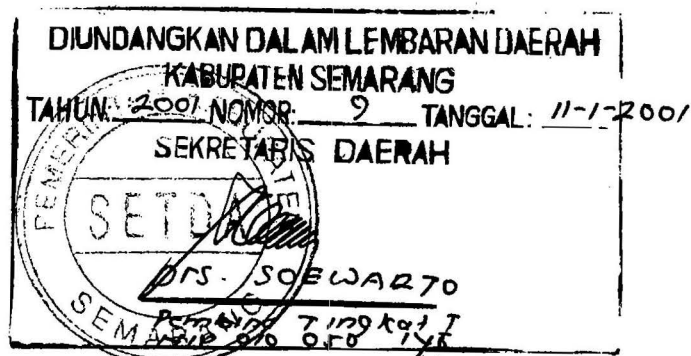 DIUNDANGKAN DALAM LEMBARAN DAERAH
KABUPATEN SEMARANG
TAHUN: 2001 NOMOR: 9 TANGGAL: 11-1-2001
SEKRETARIS DAERAH
SETDA
Drs. SOEWARTO
Pembina Tingkat I
SEMARANG